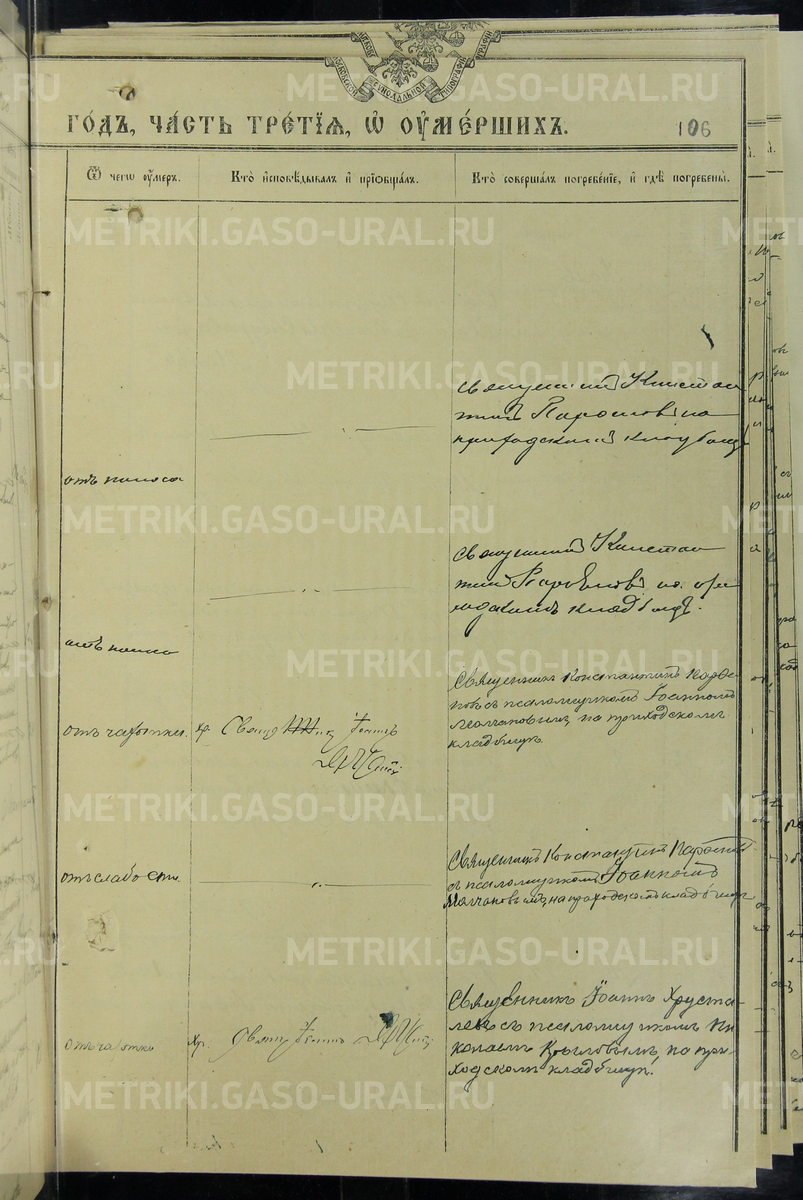 METRIKI.GASO-URAL.RU
МОСКОВСКОЙ СѴНОДАЛЬНОЙ ТИПОГРАФІИ
ГО́ДЪ, ЧА́СТЬ ТРЕ́ТІЯ, Ѡ҆ ОУ҆МЕ́РШИХЪ.
106
Ѿ чегѡ оу҆меръ.
Кто̀ и҆сповѣ́дывалъ и҆ прїѡбща́лъ.
Кто̀ соверша́лъ погребе́нїе, и҆ гдѣ̀ погребены̀.
отъ поноса
Священникъ Констан
тинъ на
приходскомъ кладбищѣ
отъ
Священникъ Констан
тинъ Парѳеновъ на при
ходскомъ кладбищѣ.
отъ чахотки
Хр.
Іоаннъ
Священникъ Константинъ Парѳе
новъ съ псаломщикомъ Іоанномъ
Молчановымъ, на приходскомъ
кладбищѣ.
отъ слабости
Священникъ Константинъ Парѳенов
съ псаломщикомъ Іоанномъ
Молчановымъ, на приходскомъ кладбищѣ
отъ чахотки
Хр.
Іоаннъ
Священникъ Іоаннъ Хруста
левъ съ псаломщикомъ Ни
колаемъ Крыловымъ, на при-
ходскомъ кладбищѣ.